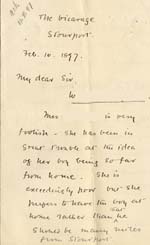 The Vicarage
Stourport.
Feb. 10. 1897.
My dear Sir,
Mrs is very
foolish - she has been in
great trouble at the idea
of her boy being so far
from home. She is
exceedingly poor but she
prefers to have the boy at
home rather than he
should be many miles
from Stourport